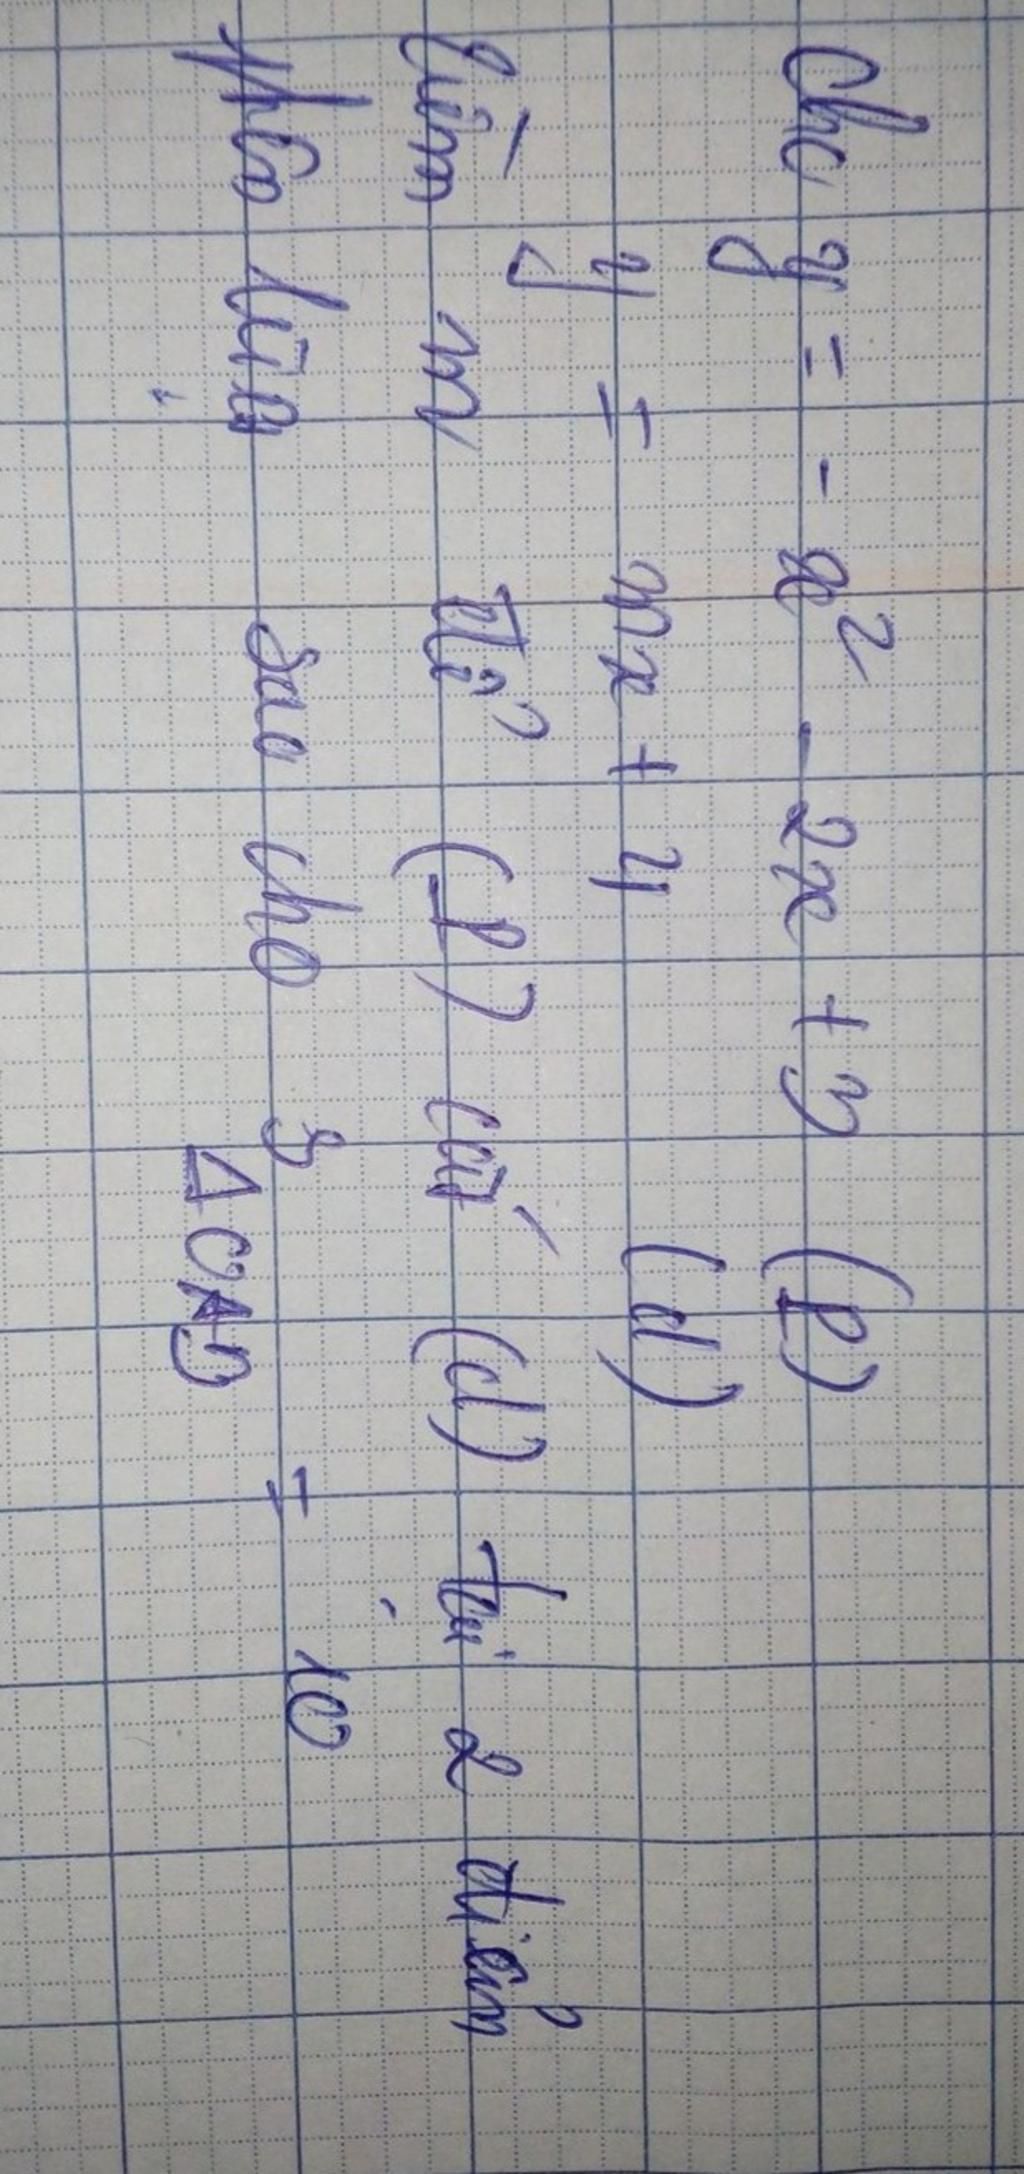 Cho y = - x² - 2x + 3 (P)
y = mx + 4 (d)
Tìm m để (P) cắt (d) tại 2 điểm
phân biệt sao cho S ΔOAB = 10